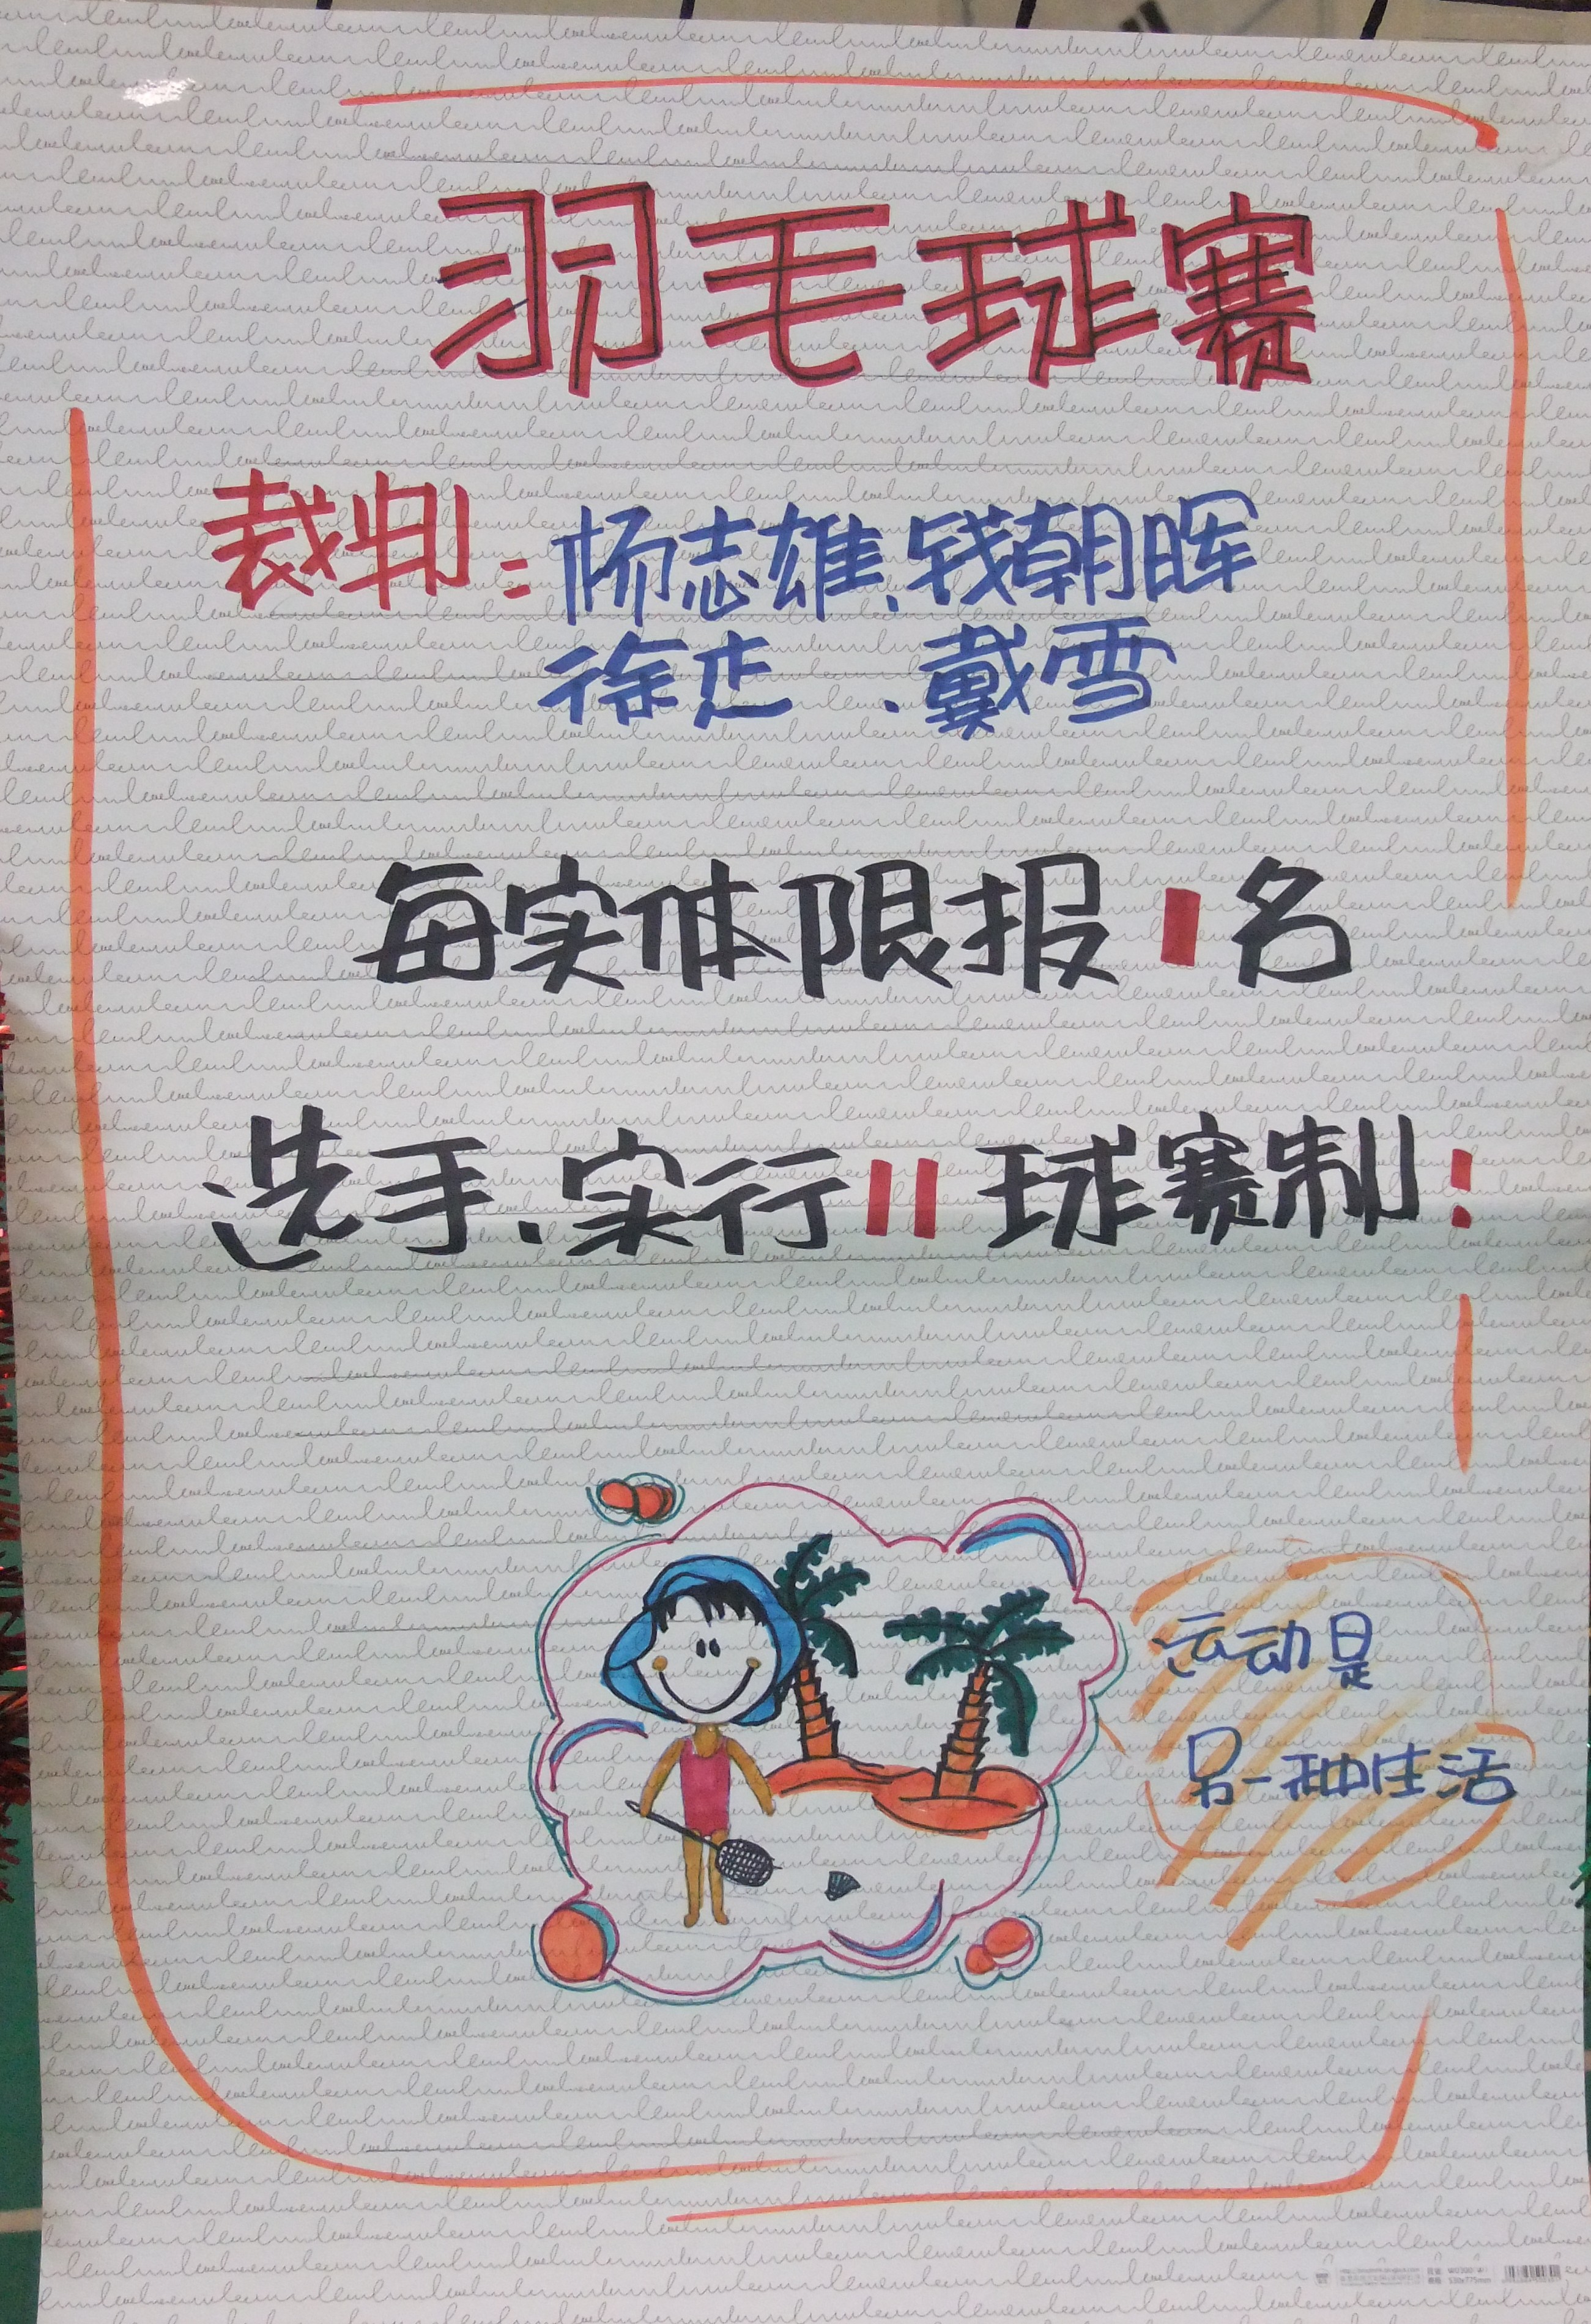 羽毛球赛
裁判：杨志雄、钱朝晖
徐志、戴雪
每实体限报1名
选手、实行11球赛制！
运动是
另一种生活